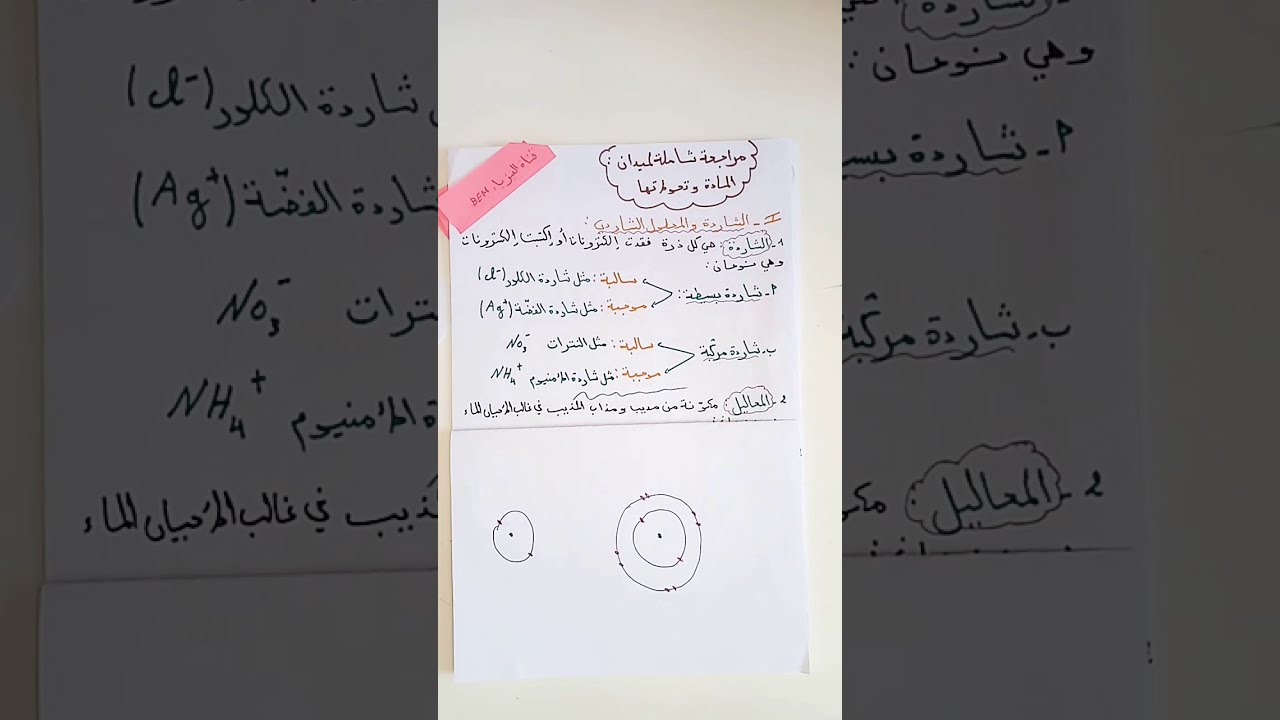 قناة الفيزياء BEM
مراجعة شاملة لميدان
المادة وتحولاتها
I - الشاردة والمحلول الشاردي:
1 - الشاردة: هي كل ذرة فقدت إلكترونات أو إكتسبت إلكترونات
وهي نوعان:
أ - شاردة بسيطة:
سالبة: مثل شاردة الكلور (Cl⁻)
موجبة: مثل شاردة الفضّة (Ag⁺)
ب - شاردة مركبّة
سالبة: مثل النترات NO₃⁻
موجبة: مثل شاردة الأمنيوم NH₄⁺
2 - المحاليل: مكوّنة من مذيب ومذاب المذيب في غالب الأحيان الماء